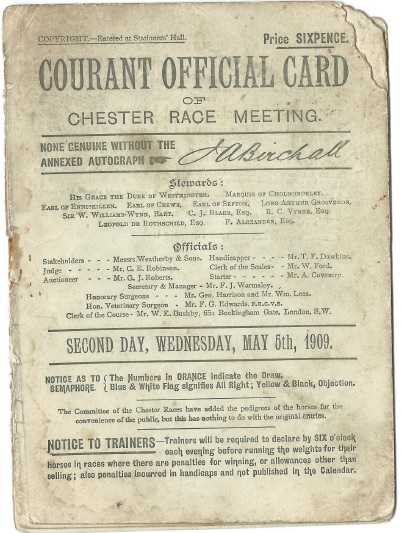 COPYRIGHT.—Entered at Stationers' Hall. Price SIXPENCE.
COURANT OFFICIAL CARD
OF
CHESTER RACE MEETING.
NONE GENUINE WITHOUT THE
ANNEXED AUTOGRAPH ☛ J A Birchall
Stewards:
HIS GRACE THE DUKE OF WESTMINSTER. MARQUIS OF CHOLMONDELEY.
EARL OF ENNISKILLEN. EARL OF CREWE. EARL OF SEFTON. LORD ARTHUR GROSVENOR.
SIR W. WILLIAMS-WYNN, BART. C. J. BLAKE, ESQ. R. C. VYNER, ESQ.
LEOPOLD DE ROTHSCHILD, ESQ. F. ALEXANDER, ESQ.
Officials:
Stakeholders - - - Messrs. Weatherby & Sons. Handicapper - - - - Mr. T. F. Dawkins.
Judge - - - - - Mr. C. E. Robinson. Clerk of the Scales - - Mr. W. Ford.
Auctioneer - - - Mr. G. J. Roberts. Starter - - - - - Mr. A. Coventry.
Secretary & Manager - Mr. F. J. Warmsley.
Honorary Surgeons - - - Mr. Geo. Harrison and Mr. Wm. Lees.
Hon. Veterinary Surgeon - Mr. F. G. Edwards, F.R.C.V.S.
Clerk of the Course - Mr. W. E. Bushby, 65a Buckingham Gate, London, S.W.
SECOND DAY, WEDNESDAY, MAY 5th, 1909.
NOTICE AS TO { The Numbers in ORANGE indicate the Draw.
SEMAPHORE. { Blue & White Flag signifies All Right; Yellow & Black, Objection.
The Committee of the Chester Races have added the pedigrees of the horses for the
convenience of the public, but this has nothing to do with the original entries.
NOTICE TO TRAINERS—Trainers will be required to declare by SIX o'clock
each evening before running the weights for their
horses in races where there are penalties for winning, or allowances other than
selling; also penalties incurred in handicaps and not published in the Calendar.